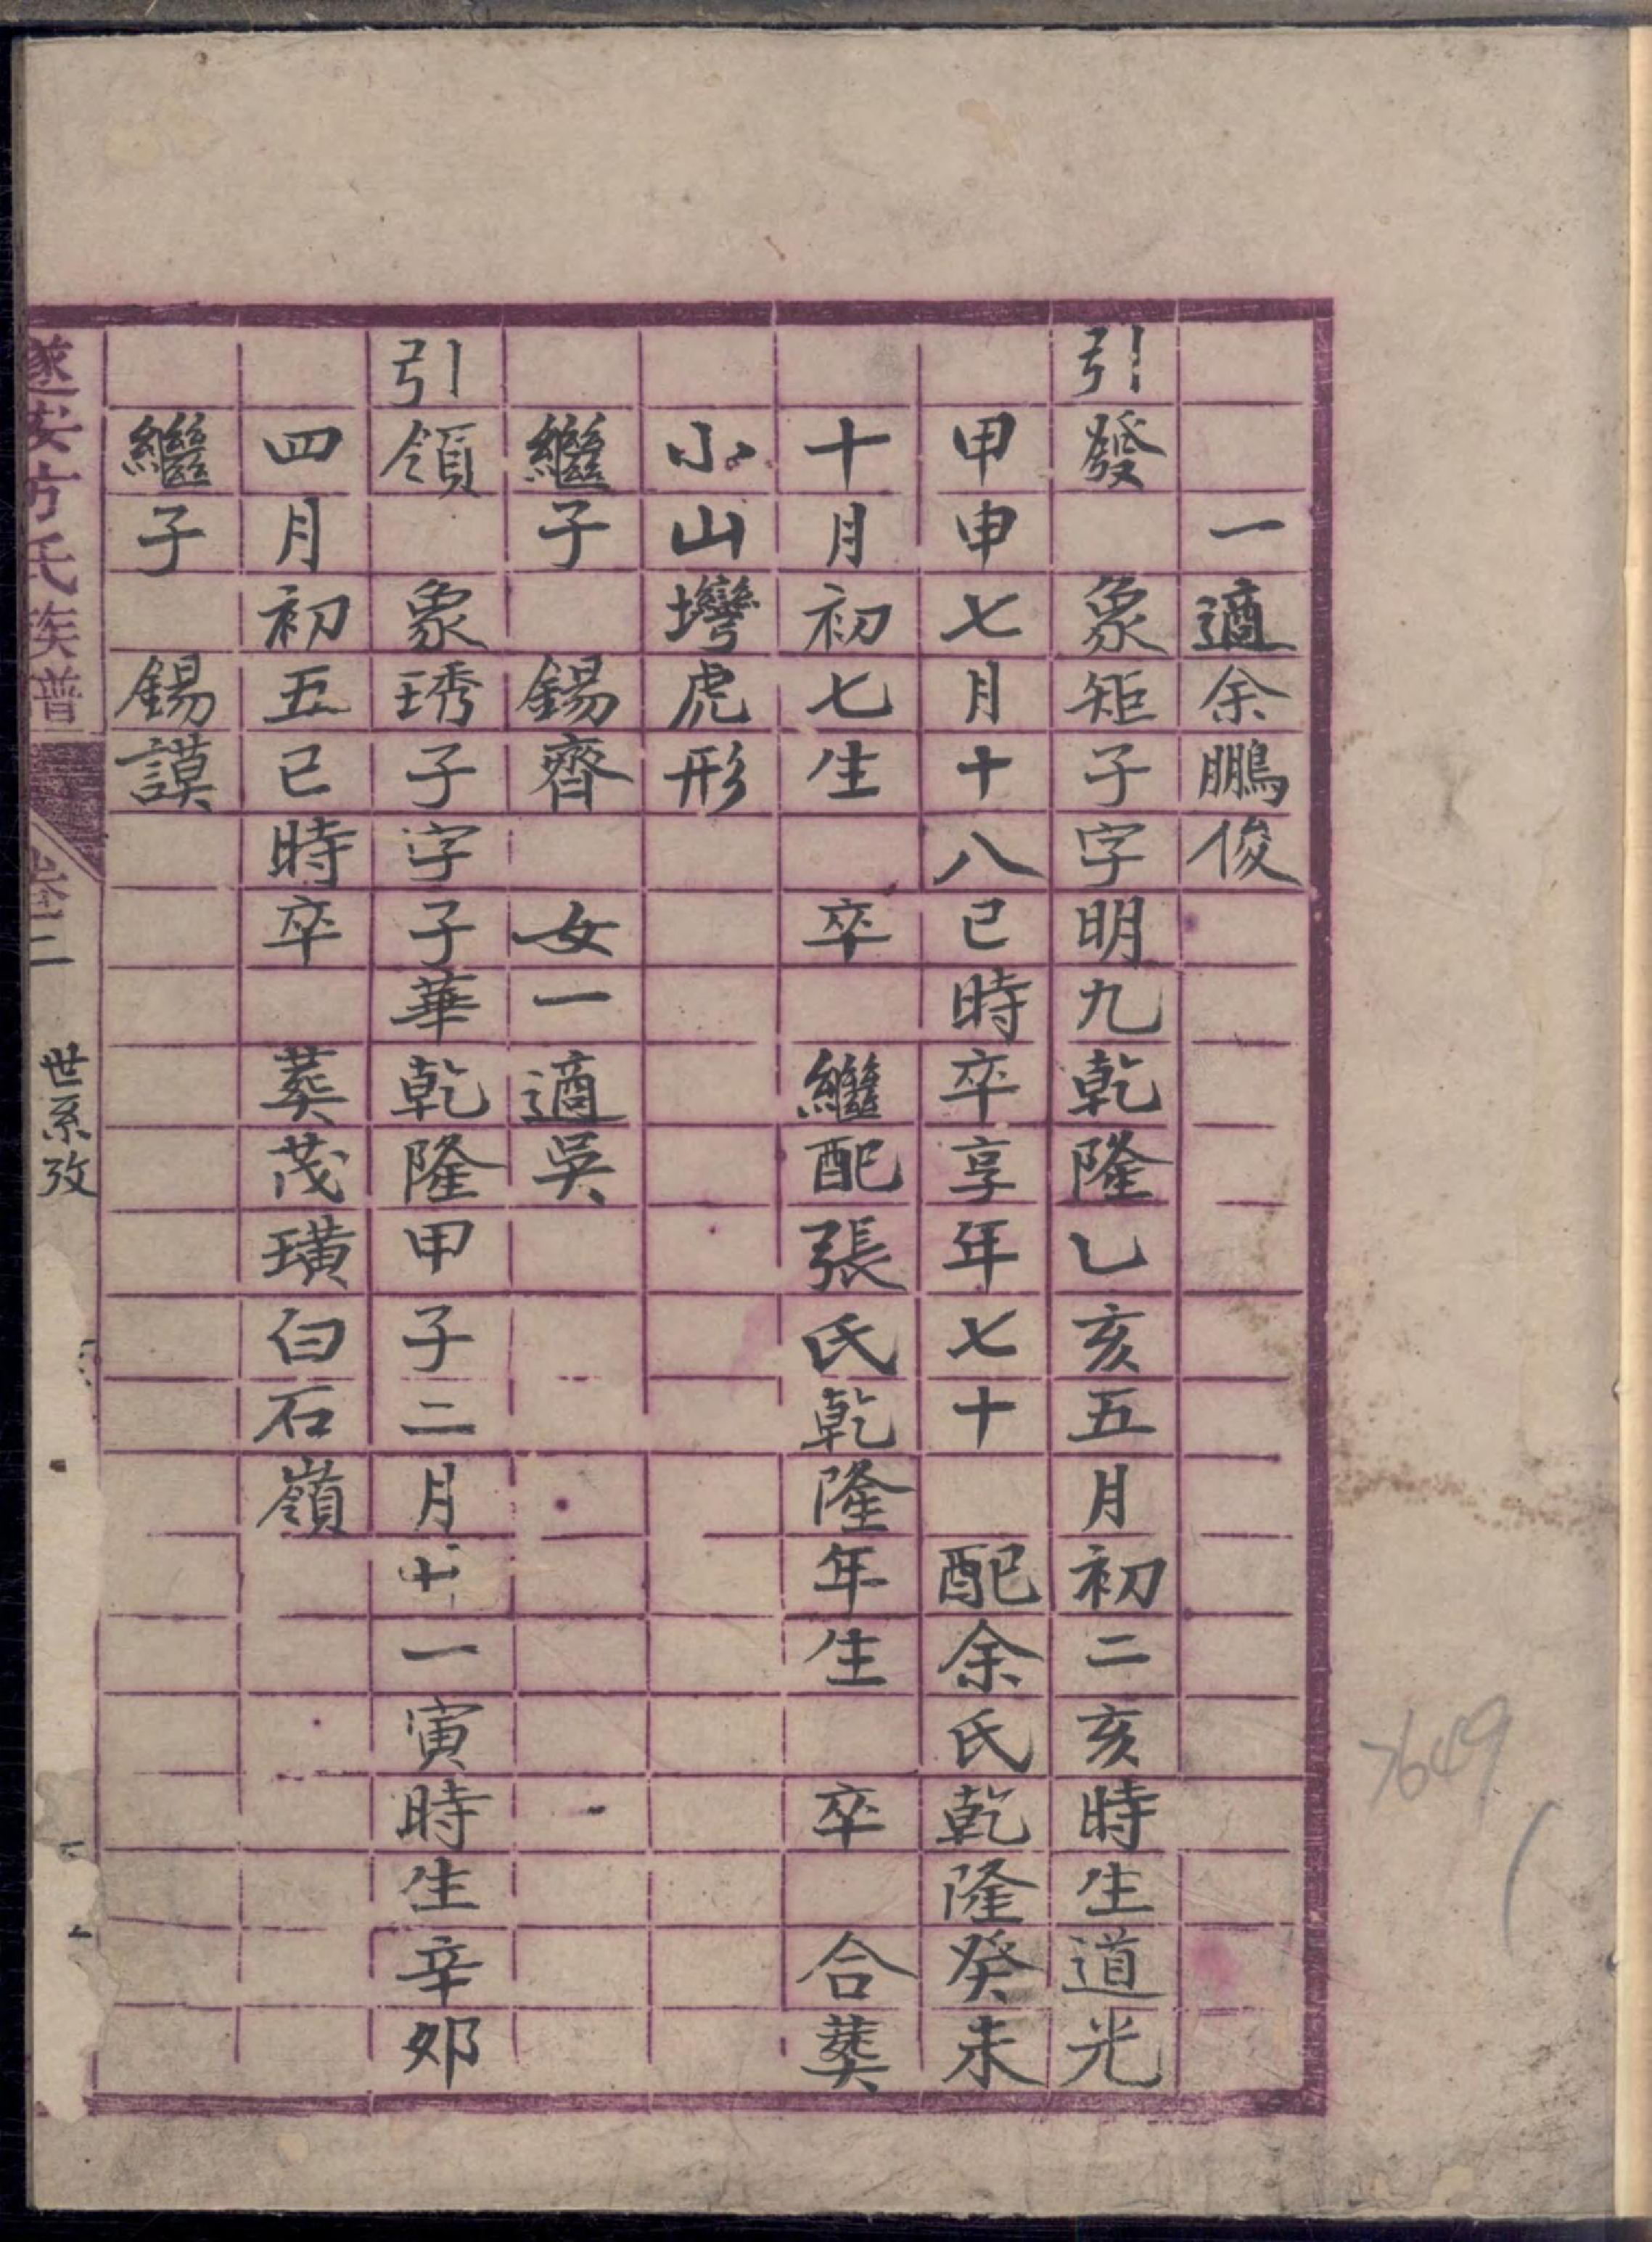 一適余鵬俊
引發　象矩子字明九乾隆乙亥五月初二亥時生道光
甲申七月十八巳時卒享年七十　配余氏乾隆癸未
十月初七生　卒　繼配張氏乾隆年生　卒　合葬
小山壪虎形
繼子　錫齊　女一適吳
引領　象琇子字子華乾隆甲子二月十一寅時生辛卯
四月初五巳時卒　葬茂璜白石嶺
繼子　錫謨
遂安方氏族譜　卷二　世系攷
7649